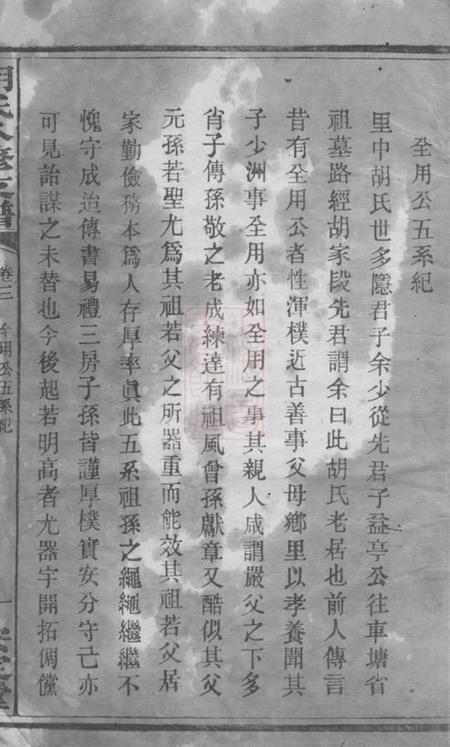 全用公五系紀
里中胡氏世多隱君子余少從先君子益亭公往車塘省
祖墓路經胡家段先君謂余曰此胡氏老居也前人傳言
昔有全用公者性渾樸近古善事父母鄉里以孝養聞其
子少洲事全用亦如全用之事其親人咸謂嚴父之下多
肖子傳孫敬之老成練達有祖風曾孫獻章又酷似其父
元孫若聖尤爲其祖若父之所器重而能效其祖若父居
家勤儉務本爲人存厚率眞此五系祖孫之繩繩繼繼不
愧守成迨傳書易禮三房子孫皆謹厚樸實安分守己亦
可見詒謀之未替也今後起若明高者尤器宇開拓倜儻
胡氏八修支譜
卷三
全用公五系紀
一